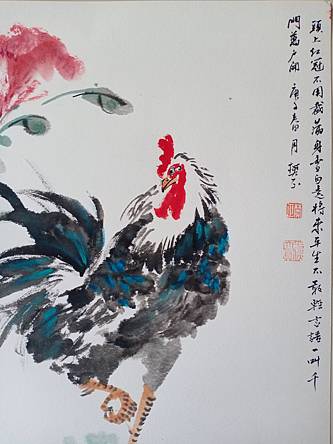 頭上紅冠不用裁滿身雪白走將來平生不敢輕言語一叫千
門萬戶開 庚子春月